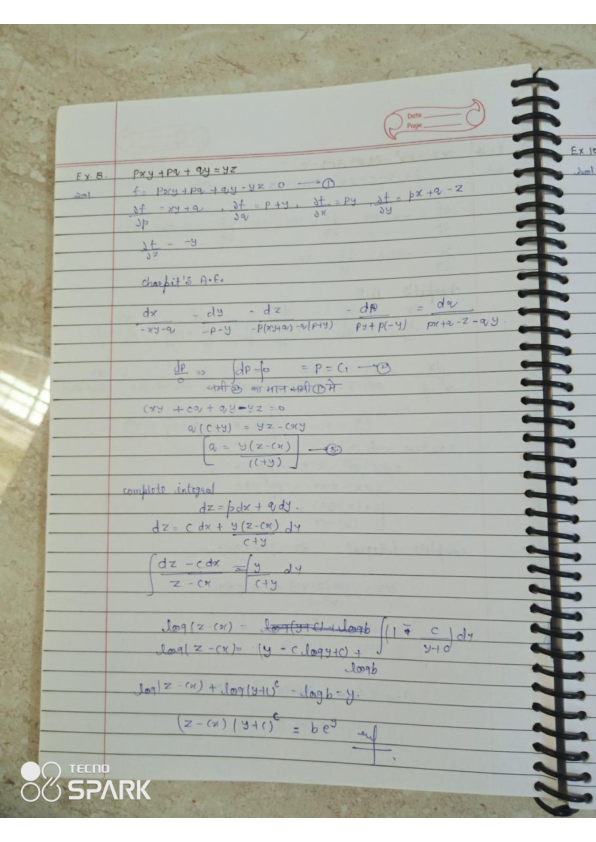 Date
Page
Ex 8. pxy + pq + qy = yz
Sol f = pxy + pq + qy - yz = 0 → ①
∂f/∂p = xy + q, ∂f/∂q = p + y, ∂f/∂x = py, ∂f/∂y = px + q - z
∂f/∂z = -y
charpit's A.E.
dx/-xy-q = dy/-p-y = dz/-p(xy+q)-q(p+y) = dp/py+p(-y) = dq/px+q-z-qy
dp/0 ∫dp = 0 = p = C₁ → ②
समी ② का मान समी ① में
cxy + cq + qy - yz = 0
q(c+y) = yz - cxy
[q = y(z-cx)/(c+y)] → ③
complete integral
dz = pdx + qdy.
dz = c dx + y(z-cx)/c+y dy
∫ dz - cdx/z - cx = ∫ y/c+y dy
log(z-cx) = ∫(1 - c/y+c) dy
log(z-cx) = (y - c log y+c) +
logb
log(z-cx) + log(y+c)ᶜ - logb = y.
(z-cx)(y+c)ᶜ = b eʸ
Ex 10
Sol
TECNO
SPARK